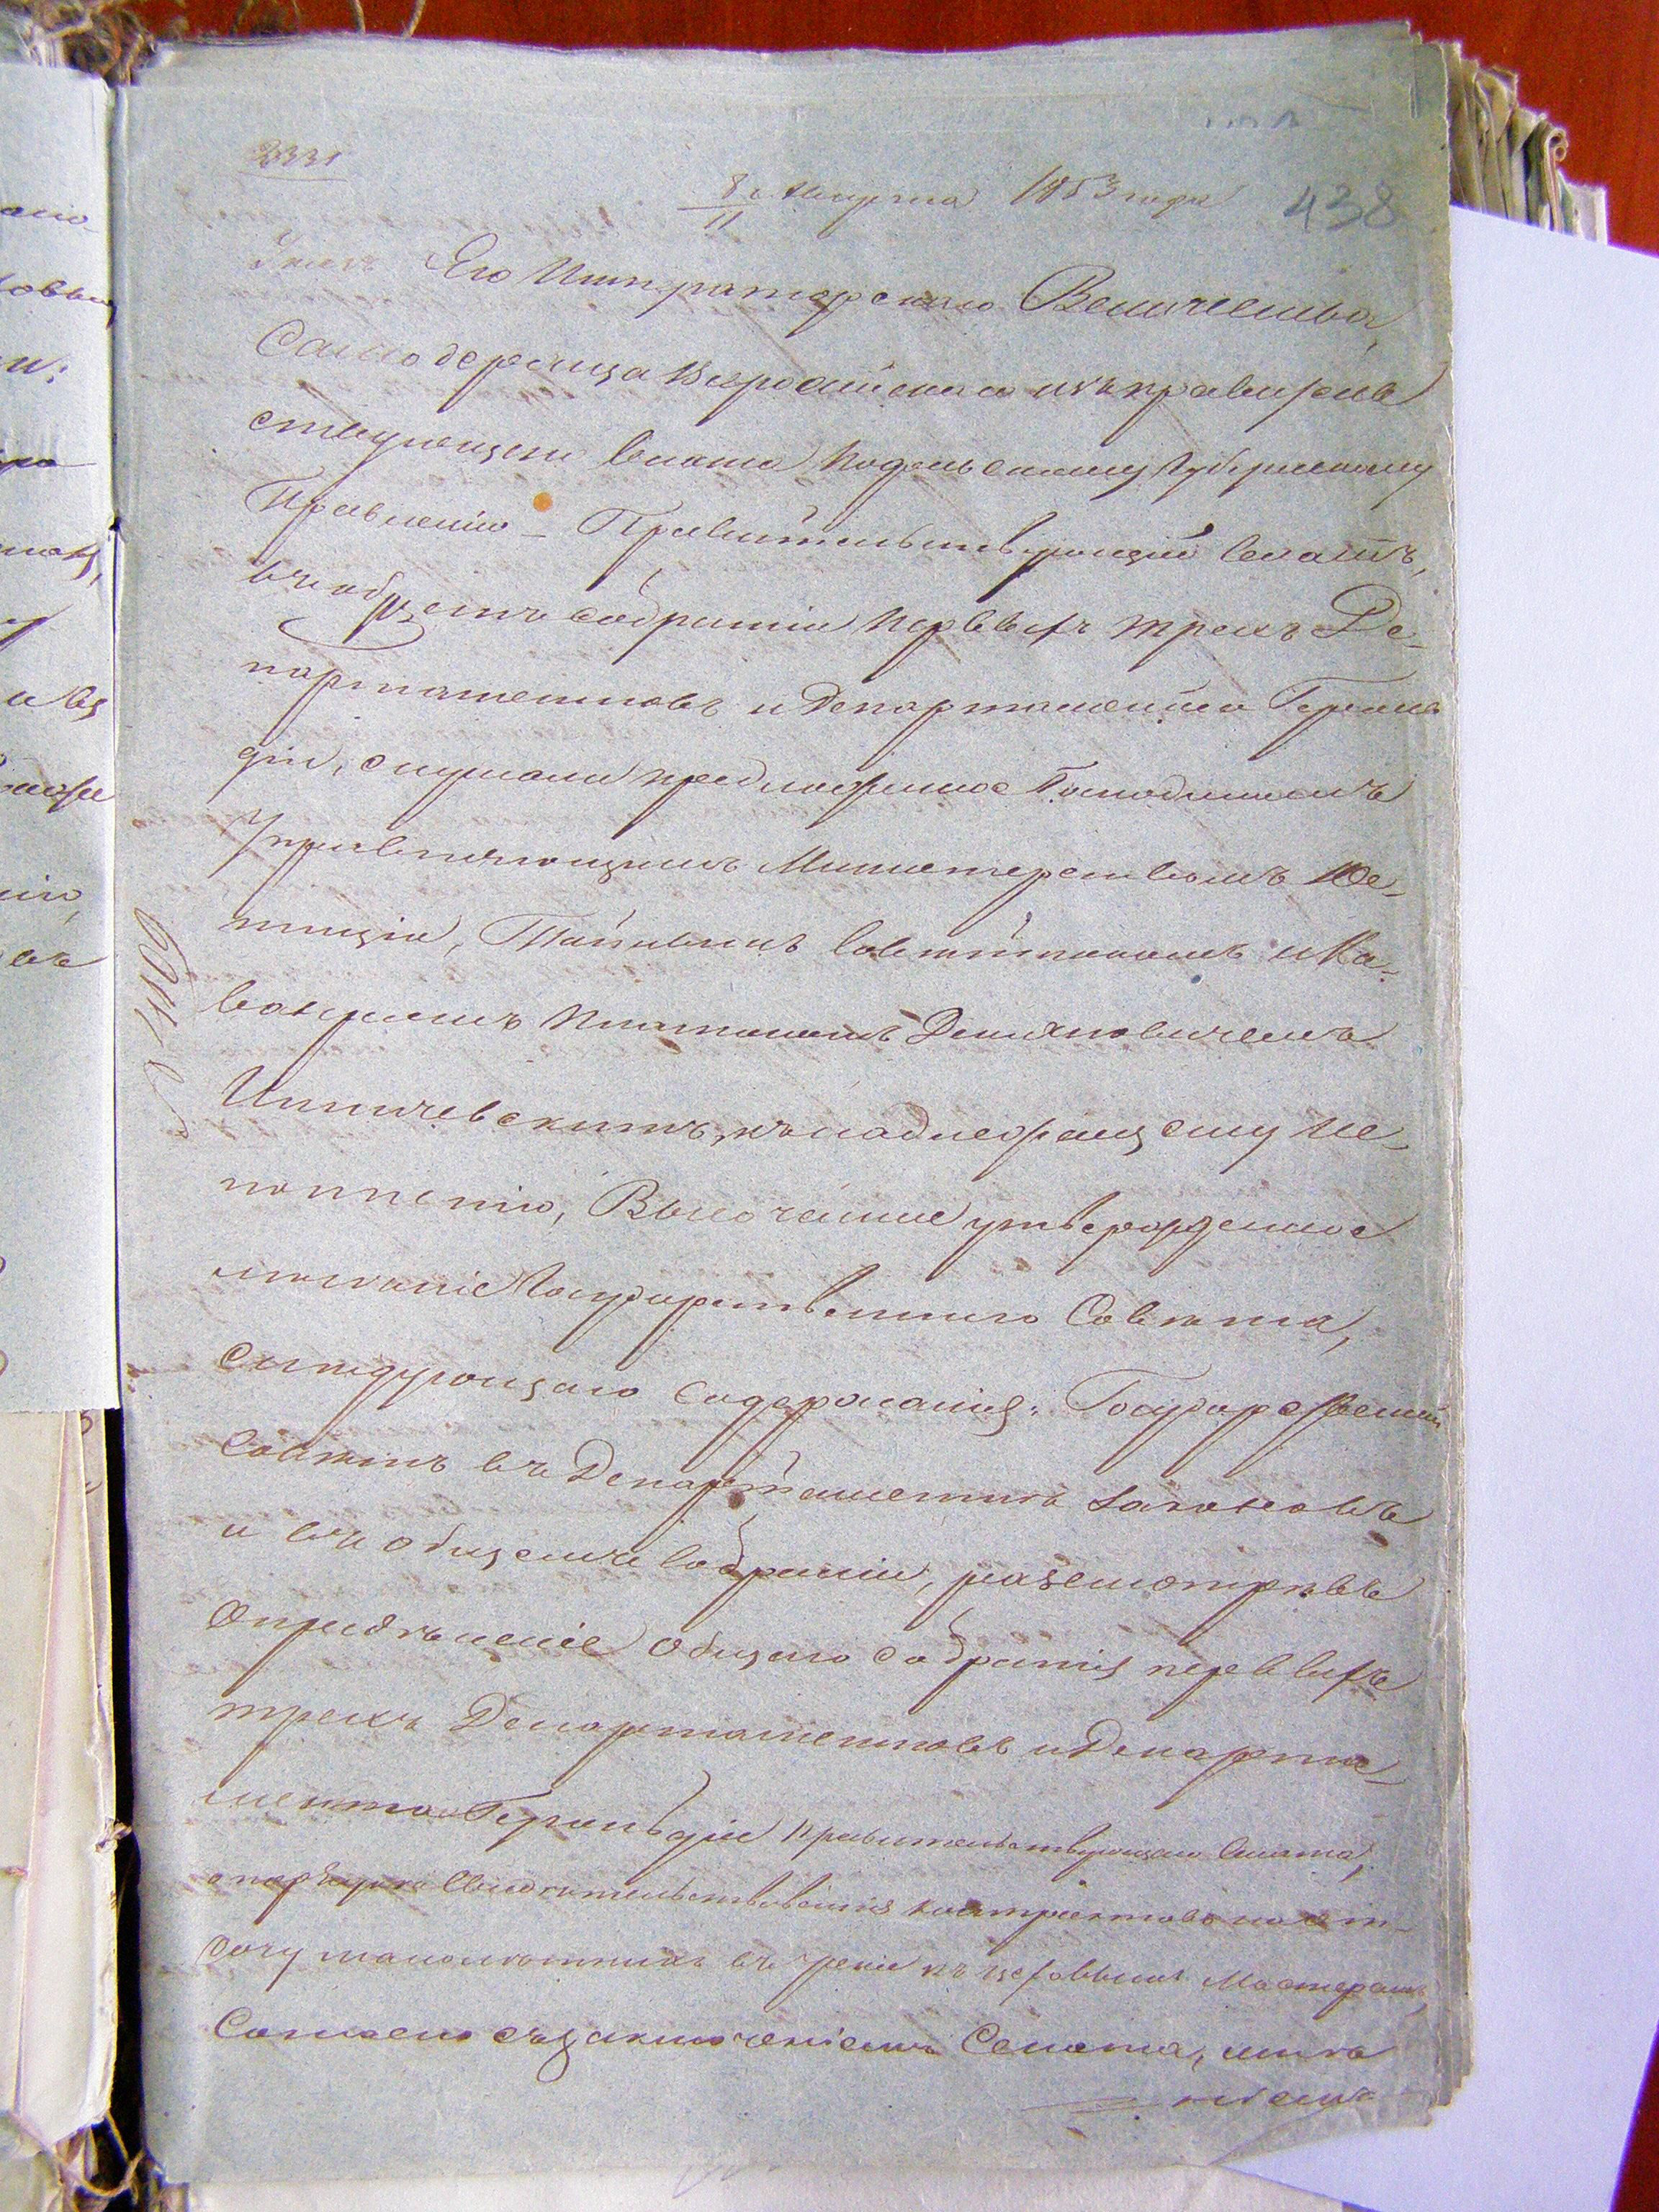 3331
8/11 Августа 1853 года
438
Указъ Его Императорскаго Величества,
Самодержца Всероссійскаго изъ правитель
ствующаго Сената Подольскому Губернскому
Правленію – Правительствующій Сенатъ,
въ общемъ собраніи первыхъ трехъ Де-
партаментовъ и Департамента Героль
діи, слушали предложенное Господиномъ
Управляющимъ Министерствомъ Юс-
тиціи, Тайнымъ Совѣтникомъ и Ка-
валеромъ Платономъ Демяновичемъ
Илличевскимъ, къ надлежащему ис-
полненію, Высочайше утвержденное
мнѣніе Государственнаго Совѣта,
слѣдующаго содержанія: Государственный
Совѣтъ въ Департаментѣ Законовъ
и въ общемъ Собраніи, разсмотрѣвъ
опредѣленіе общаго собранія первыхъ
трехъ Департаментовъ и Департа-
мента Герольдіи Правительствующаго Сената,
о порядкѣ свидѣтельствованія контрактовъ на от-
дачу малолѣтнихъ въ ученіе къ цеховымъ Мастерамъ,
Согласно съ заключеніемъ Сената, мнѣ
ніемъ